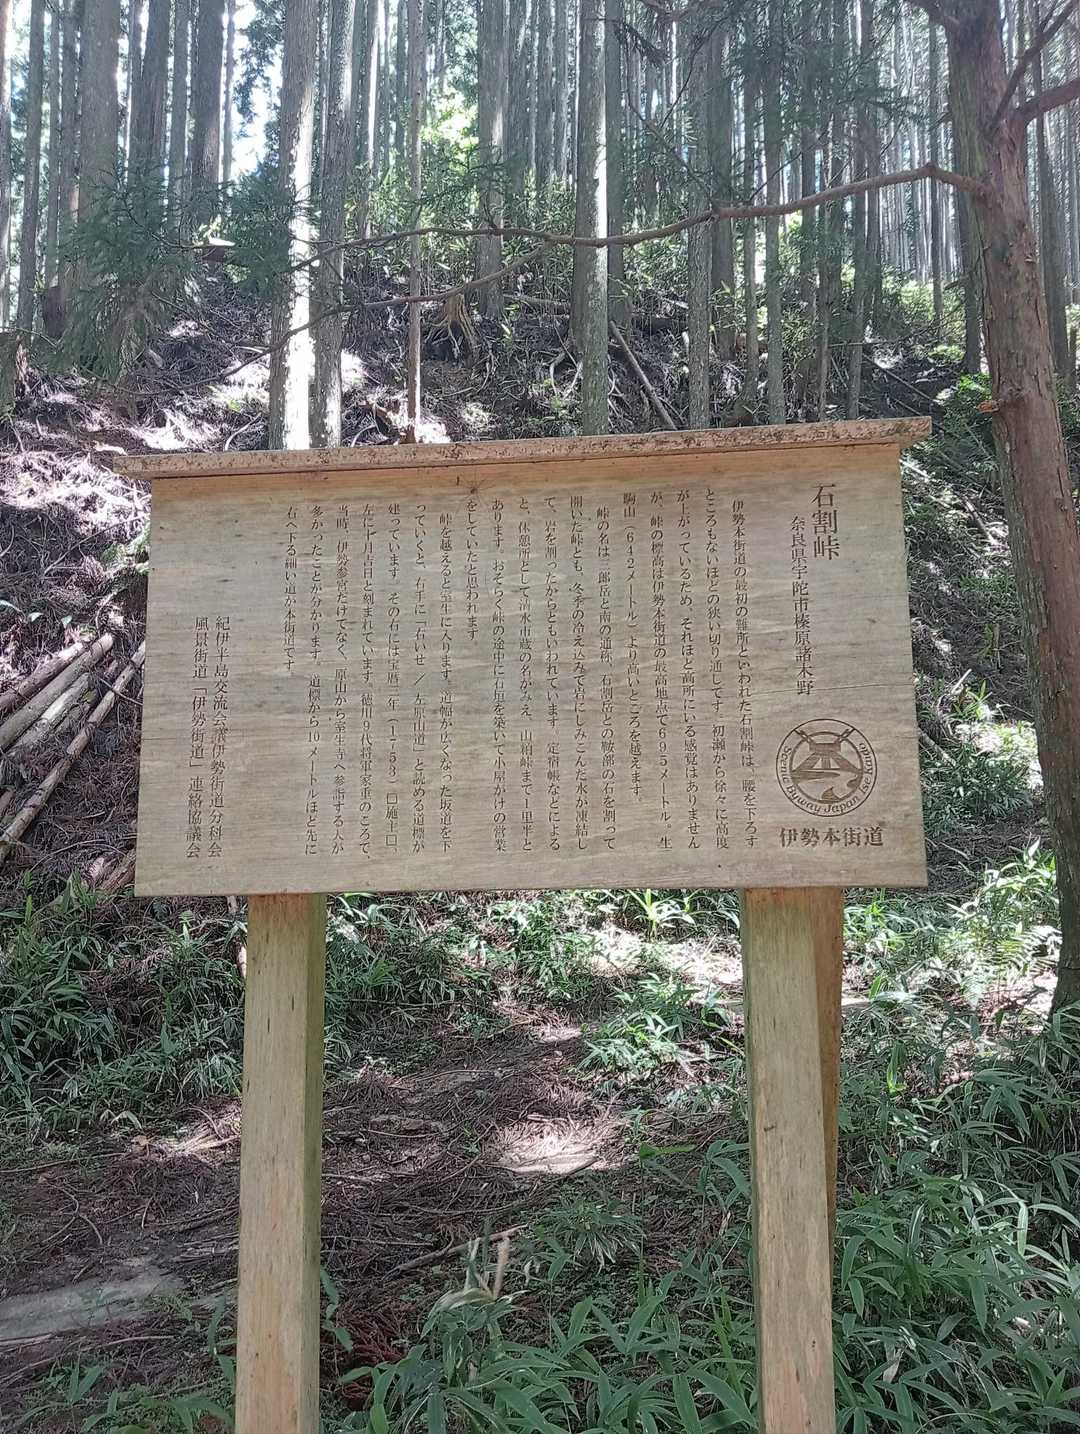 石割峠
奈良県宇陀市榛原諸木野
伊勢本街道の最初の難所といわれた石割峠は、腰を下ろす
ところもないほどの狭い切り通しです。初瀬から徐々に高度
が上がっているため、それほど高所にいる感覚はありません
が、峠の標高は伊勢本街道の最高地点で695メートル。生
駒山（642メートル）より高いところを越えます。
峠の名は三郎岳と南の通称、石割岳との鞍部の石を割って
開いた峠とも、冬季の冷え込みで岩にしみこんだ水が凍結し
て、岩を割ったからともいわれています。定宿帳などによる
と、休憩所として清水市蔵の名がみえ、山粕峠まで一里半と
あります。おそらく峠の途中に石垣を築いて小屋がけの営業
をしていたと思われます。
峠を越えると室生に入ります。道幅が広くなった坂道を下
っていくと、右手に「右いせ／左原山道」と読める道標が
建っています。その右には宝暦三年（1753）□施主□、
左に十月吉日と刻まれています。徳川九代将軍家重のころで、
当時、伊勢参宮だけでなく、原山から室生寺へ参詣する人が
多かったことが分かります。道標から10メートルほど先に
右へ下る細い道が本街道です。
紀伊半島交流会議伊勢街道分科会
風景街道「伊勢街道」連絡協議会
Scenic Byway Japan Ise Kaido
伊勢本街道